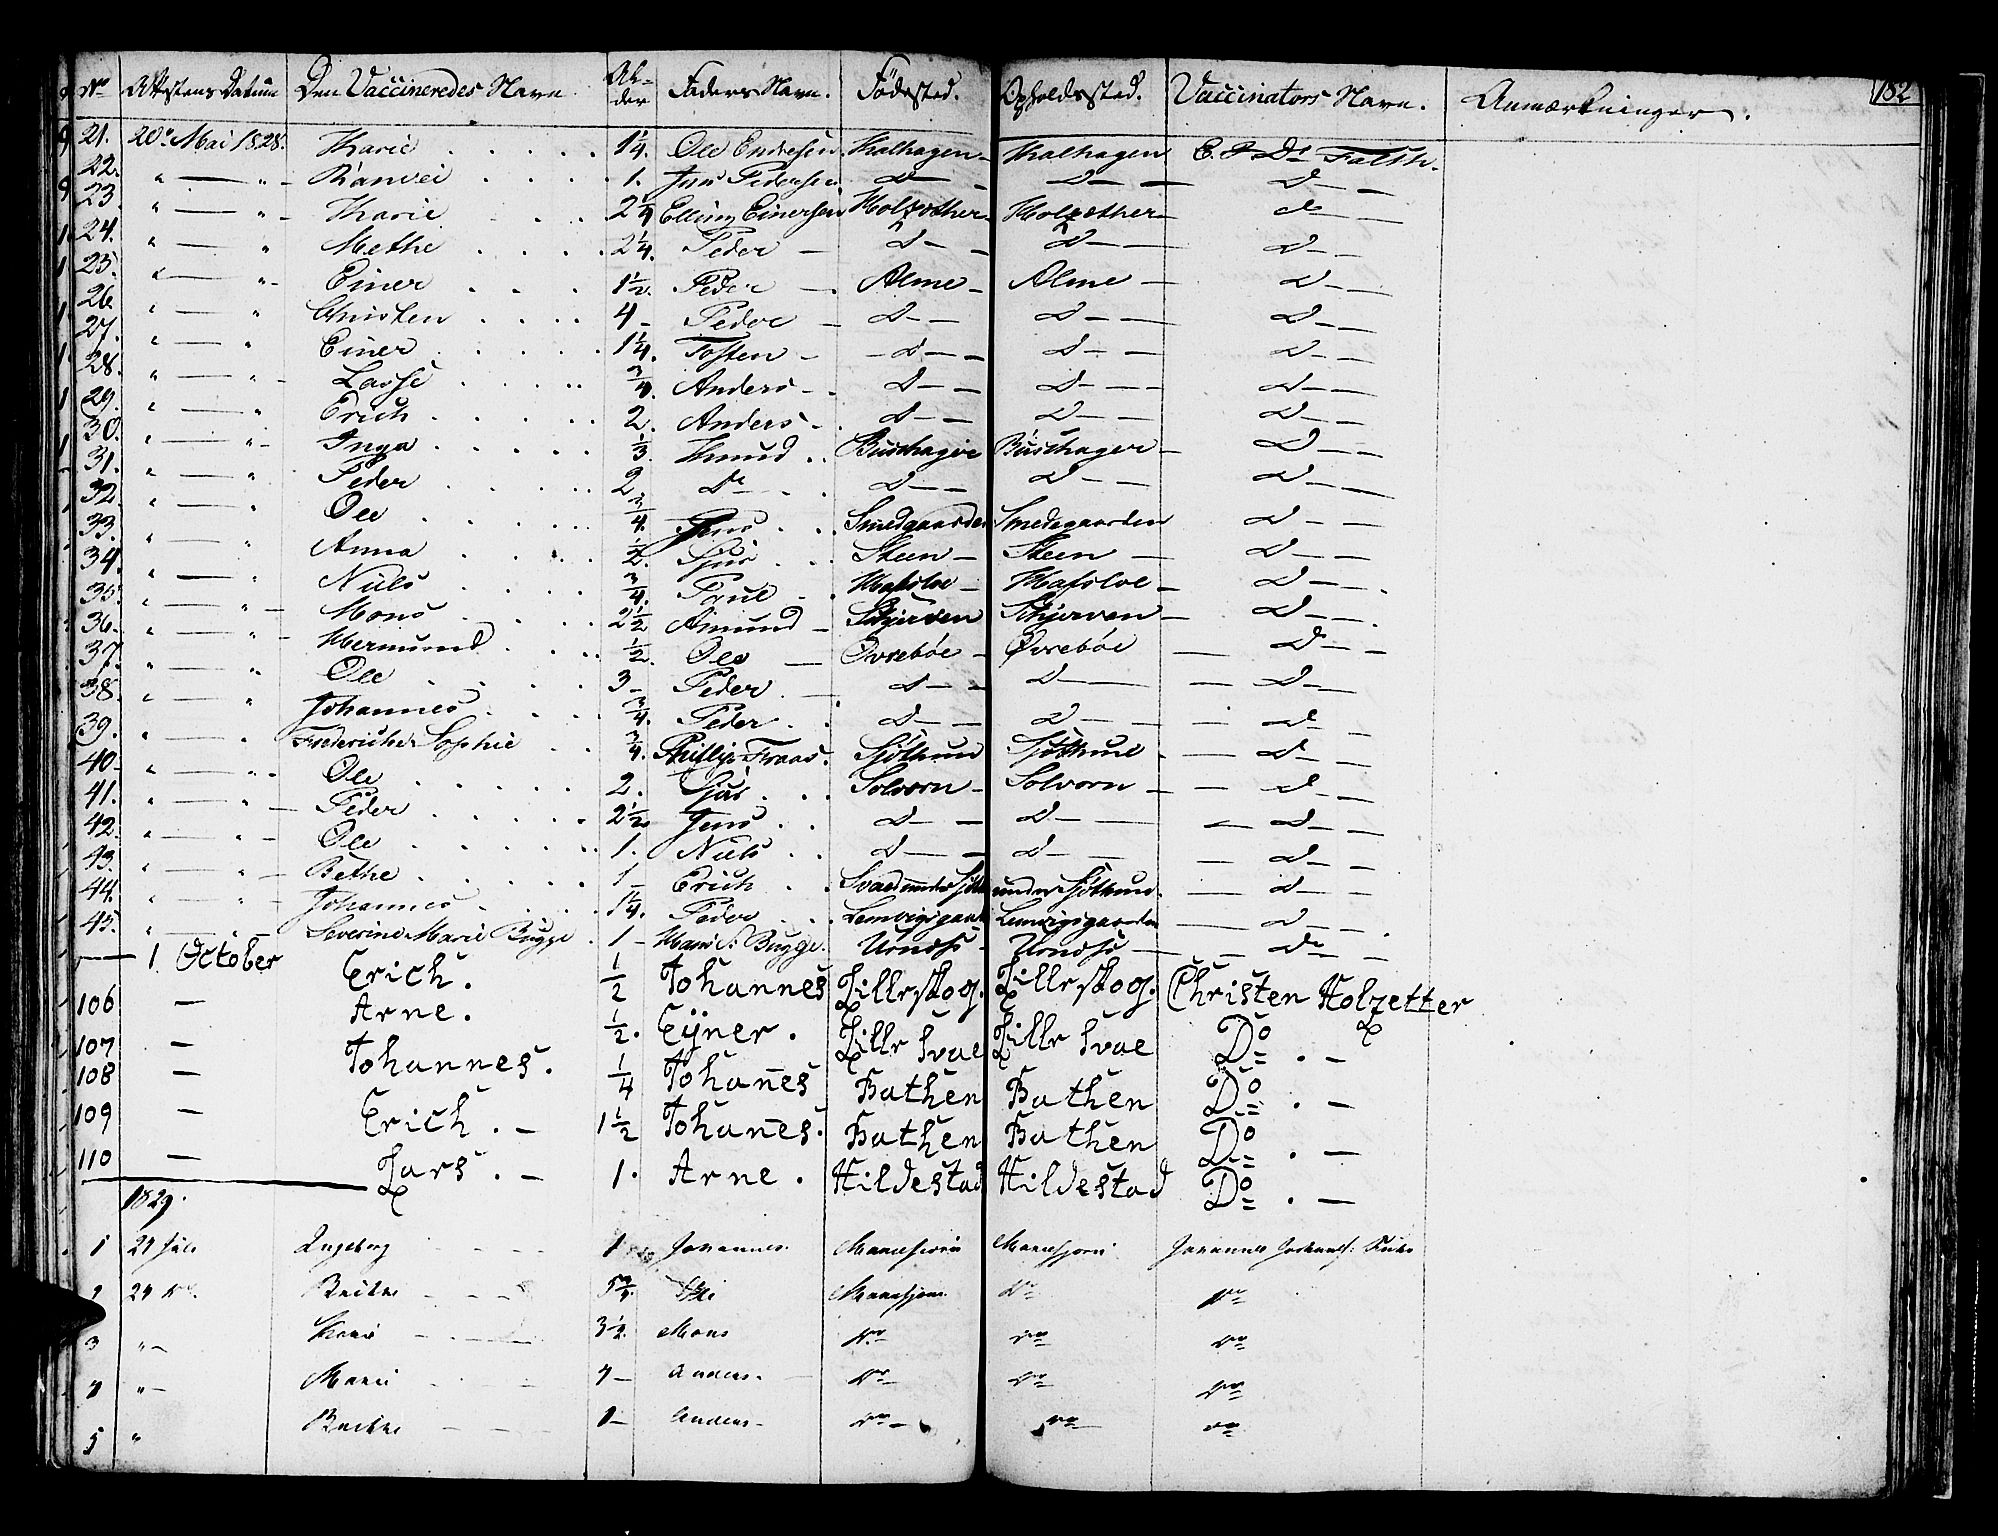 No Attestens Datum Den Vaccineredes Navn. Al-der Faders Navn. Fødested. Opholdssted. Vaccinators Navn. Anmærkninger. 182
21. 20de Mai 1828. Karie 1 1/4. Ole Endresen Kalhagen Kalhagen
22. " — " Ranvei 1. Jens Pedersen D— D— D—
23. " — " Karie 2 1/4 Elling Einersen Molzether Molzether D—
24. " — " Methe 2 1/4. Peder D— D— D—
25. " — " Einer 1 1/2. Peder Alme Alme D—
26. " — " Christen 4 Peder D— D— D—
27. " — " Einer 1 1/4. Tosten D— D— D—
28. " — " Lasse 3/4 Anders D— D— D—
29. " — " Erich 2. Anders D— D— D—
30. " — " Inga 1/3. Knud Buschager D—
31. " — " Peder 2 Do D— D— D—
32. " — " Ole 3/4. Jens Smedgaarden Smedegaarden D—
33. " — " Anna 1/2. Sjur Steen Steen D—
34. " — " Niels 3/4. Poul Hafsloe Hafsloe D—
35. " — " Mons 2 1/2 Amund Schjerven Schjerven D—
36. " — " Hermund 1/2. Ole Øvrebøe Øvrebøe D—
37. " — " Ole 3 Peder D— D— D—
38. " — " Johannes 3/4. Peder D— D— D—
39. " — " Fridericke Sophie 3/4. Phillip Fraas. D—
40. " — " Ole 2. Sjur Solvorn Solvorn D—
41. " — " Peder 2 1/2. Jens D— D— D—
42. " — " Ole 1. Niels D— D— D—
43. " — " Bethe 1 Erich D—
44. " — " Johannes 1 1/4. Peder Lemvigsgaard Lemvigsgaarden D—
45. " — Severine Marie Bugge. 1 Hans S: Bugge. Urnæs Urnæs Do
— 1. October Erich. 1/2 Johannes Lilleskog. Lilleskog. Christen Molzetter
106 — Arne. 1/2. Eijner. Lille Svae Lille Svae Do. —
107 — Johannes. 1/4 Johanes Bathen Bathen Do. —
108 — Erich. — 1 1/2 Johanes. Bathen Bathen Do. —
109 — Lars. — 1. Arne. Hildestad Hildestad Do. —
110 —
1829.
1 Juli Ingeborg 1 Johannes Marifjøren Marifjøren Johannes
2 Brithe Marifjøren Do Do
3 " — Kari 3 1/2. Mons Do Do Do
4 " — Marie 4 — Anders. Do Do Do
5 " Brithe 1 — Anders — Do — Do Do